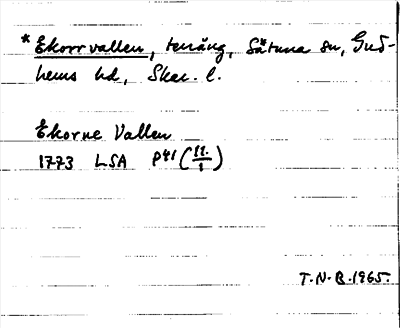 * Ekorrvallen, teräng, Sätuna sn, Gud-
hems hd, Skar. l.
Ekorne Vallen
1773 LSA P41 (11./1)
T.N.B. 1965.